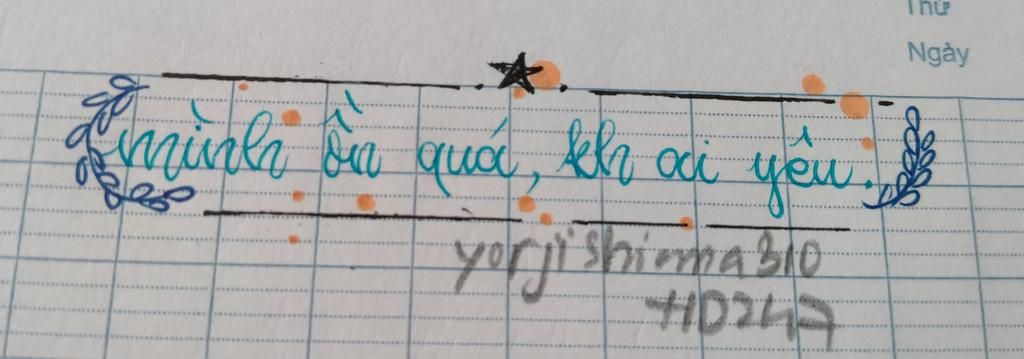 Thứ
Ngày
mình ồn quá, kh ai yêu.
yorjishirma310
HD247